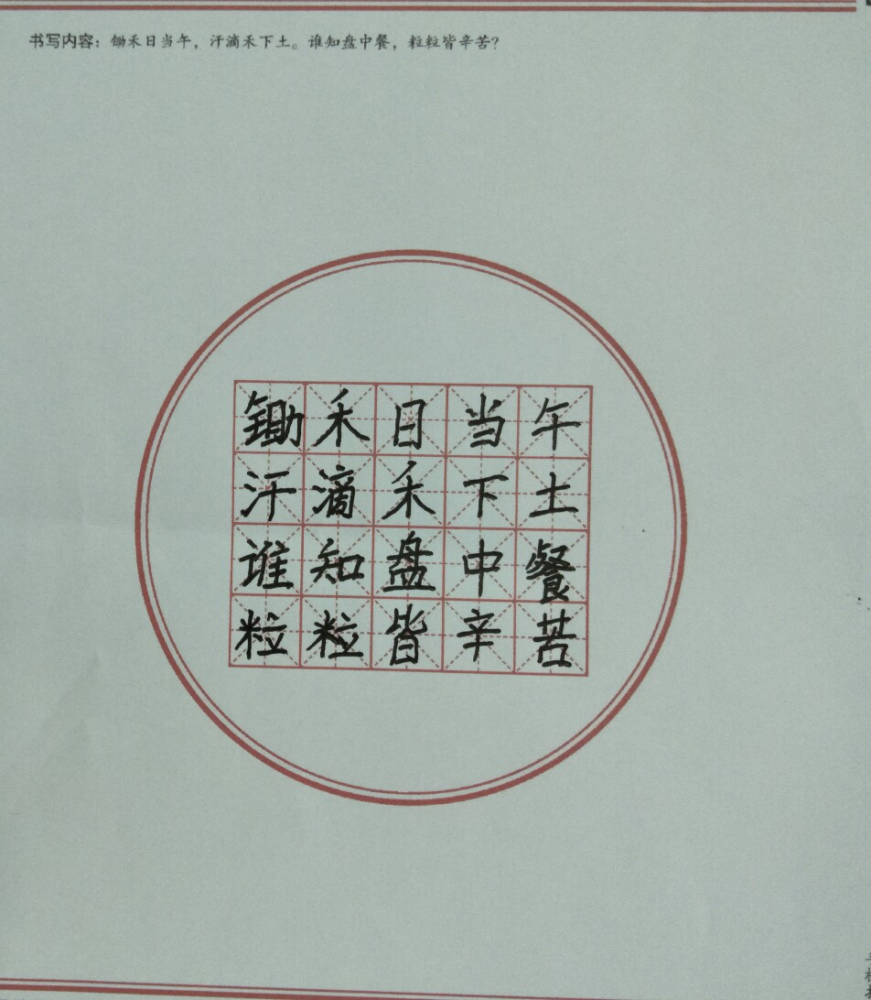 书写内容：锄禾日当午，汗滴禾下土。谁知盘中餐，粒粒皆辛苦？
锄禾日当午
汗滴禾下土
谁知盘中餐
粒粒皆辛苦